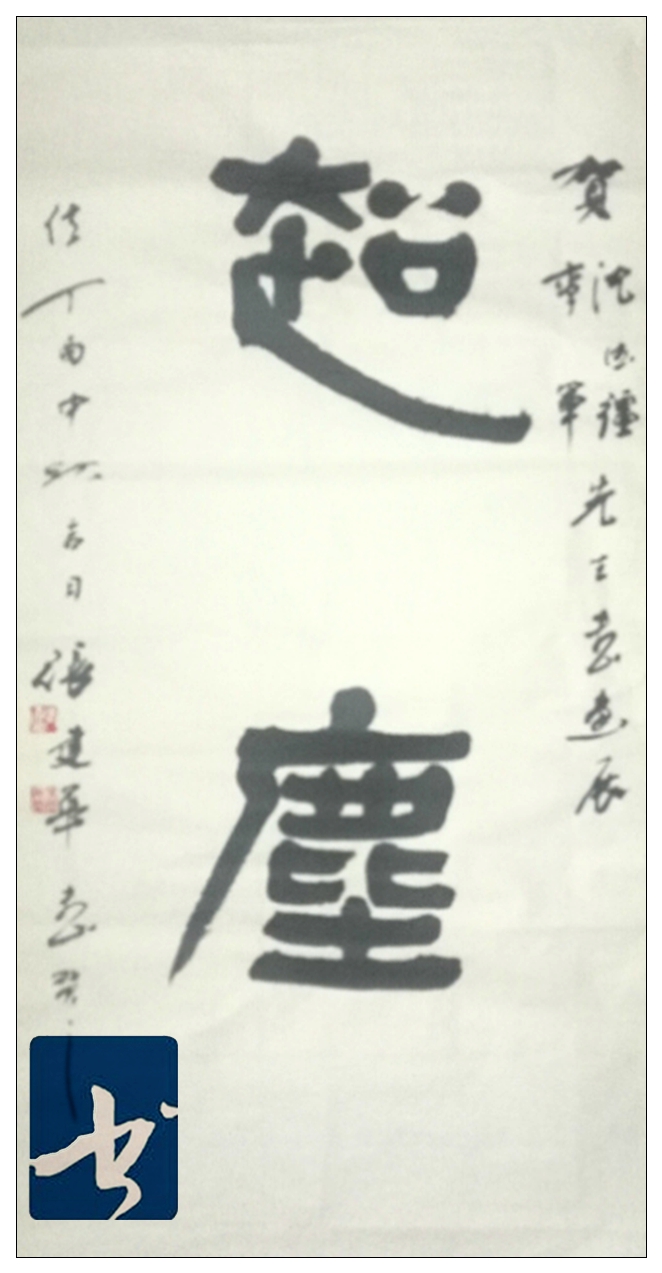 賀沈
軍
先生書畫展
超塵
丁酉中秋吉日張建華書賀
书